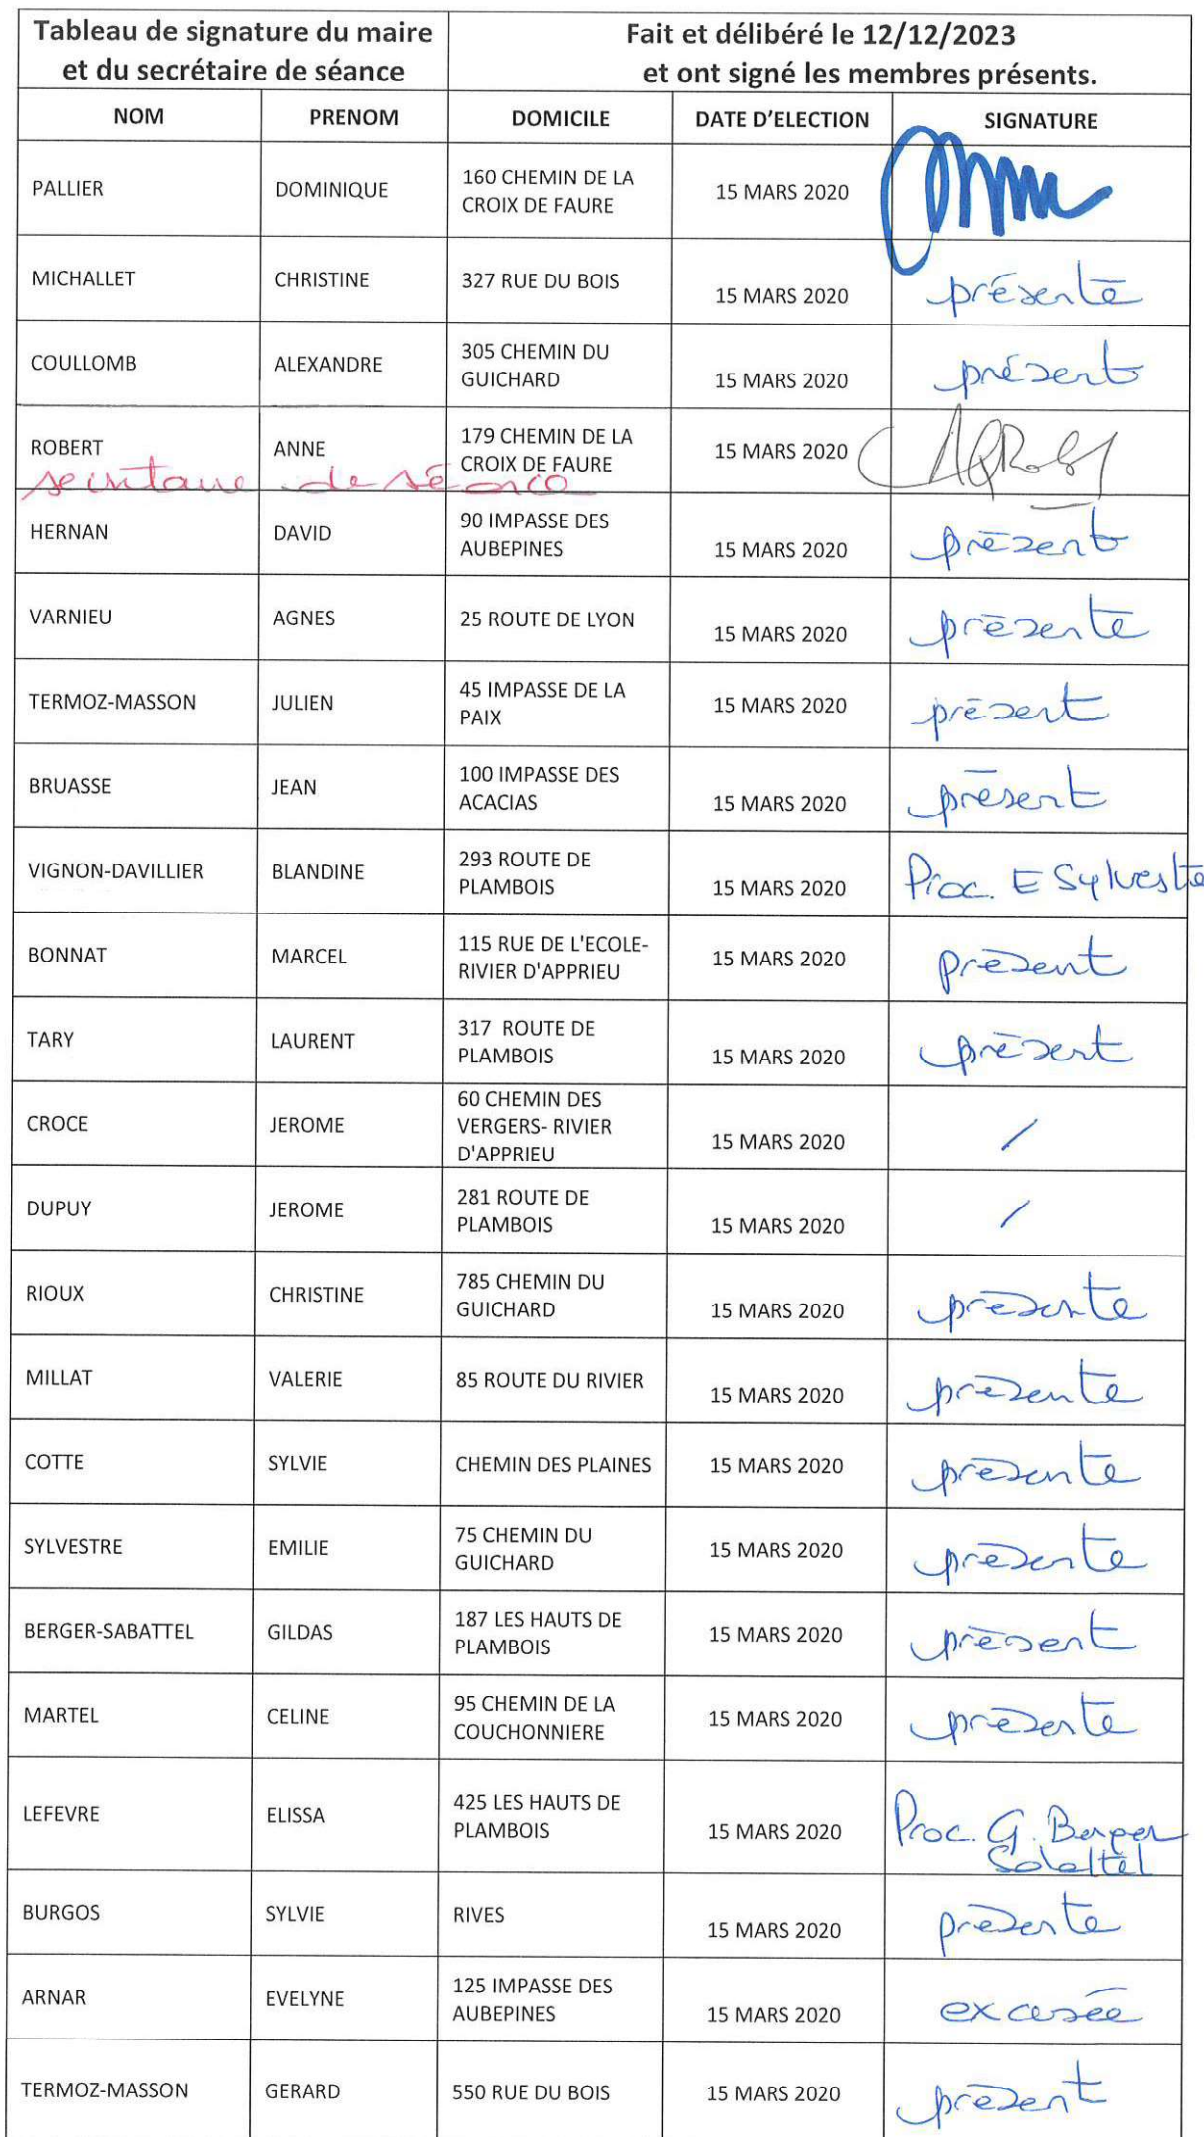 Tableau de signature du maire
et du secrétaire de séance
Fait et délibéré le 12/12/2023
et ont signé les membres présents.
NOM PRENOM DOMICILE DATE D'ELECTION SIGNATURE
PALLIER DOMINIQUE 160 CHEMIN DE LA CROIX DE FAURE 15 MARS 2020
MICHALLET CHRISTINE 327 RUE DU BOIS 15 MARS 2020 présente
COULLOMB ALEXANDRE 305 CHEMIN DU GUICHARD 15 MARS 2020 présent
ROBERT ANNE 179 CHEMIN DE LA CROIX DE FAURE 15 MARS 2020
secrétaire de séance
HERNAN DAVID 90 IMPASSE DES AUBEPINES 15 MARS 2020 présent
VARNIEU AGNES 25 ROUTE DE LYON 15 MARS 2020 présente
TERMOZ-MASSON JULIEN 45 IMPASSE DE LA PAIX 15 MARS 2020 présent
BRUASSE JEAN 100 IMPASSE DES ACACIAS 15 MARS 2020 présent
VIGNON-DAVILLIER BLANDINE 293 ROUTE DE PLAMBOIS 15 MARS 2020 Proc. E Sylvestre
BONNAT MARCEL 115 RUE DE L'ECOLE- RIVIER D'APPRIEU 15 MARS 2020 présent
TARY LAURENT 317 ROUTE DE PLAMBOIS 15 MARS 2020 présent
CROCE JEROME 60 CHEMIN DES VERGERS- RIVIER D'APPRIEU 15 MARS 2020 /
DUPUY JEROME 281 ROUTE DE PLAMBOIS 15 MARS 2020 /
RIOUX CHRISTINE 785 CHEMIN DU GUICHARD 15 MARS 2020 présente
MILLAT VALERIE 85 ROUTE DU RIVIER 15 MARS 2020 présente
COTTE SYLVIE CHEMIN DES PLAINES 15 MARS 2020 présente
SYLVESTRE EMILIE 75 CHEMIN DU GUICHARD 15 MARS 2020 présente
BERGER-SABATTEL GILDAS 187 LES HAUTS DE PLAMBOIS 15 MARS 2020 présent
MARTEL CELINE 95 CHEMIN DE LA COUCHONNIERE 15 MARS 2020 présente
LEFEVRE ELISSA 425 LES HAUTS DE PLAMBOIS 15 MARS 2020 Proc. G. Berger Sabattel
BURGOS SYLVIE RIVES 15 MARS 2020 présente
ARNAR EVELYNE 125 IMPASSE DES AUBEPINES 15 MARS 2020 excusée
TERMOZ-MASSON GERARD 550 RUE DU BOIS 15 MARS 2020 présent